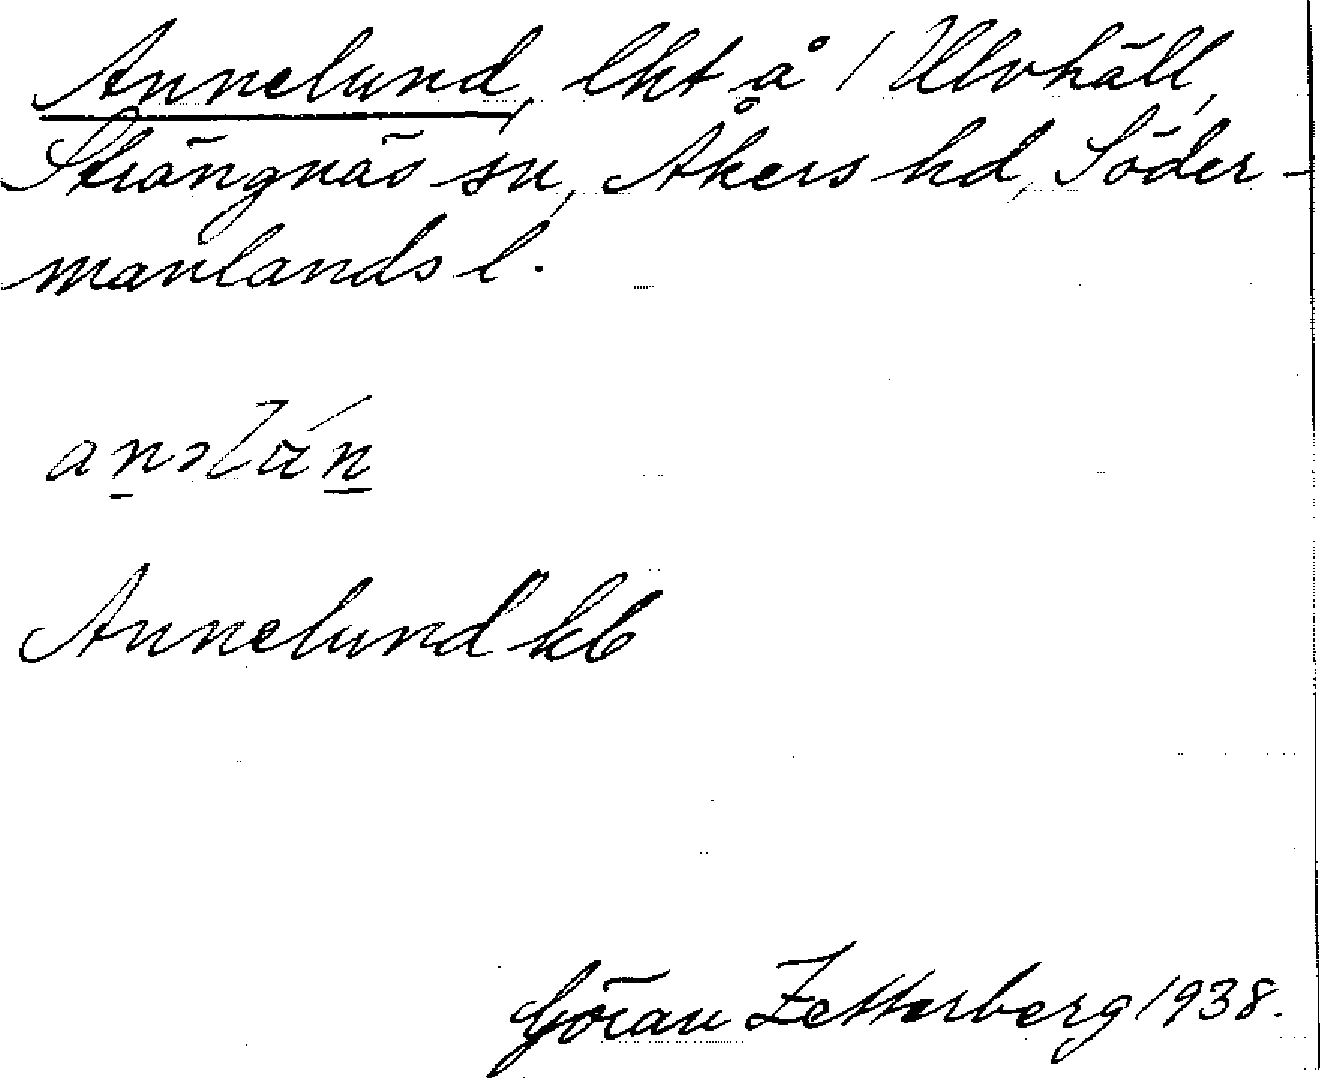 Annelund, lht å / Ulvhäll,
Strängnäs sn, Åkers hd, Söder-
manlands l.
Annelund kb
Göran Zetterberg 1938.